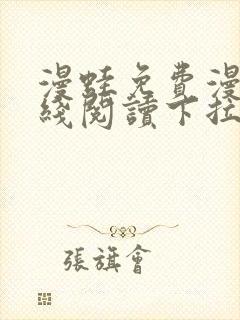 漫蛙免费漫
线阅读下拉
張旗會